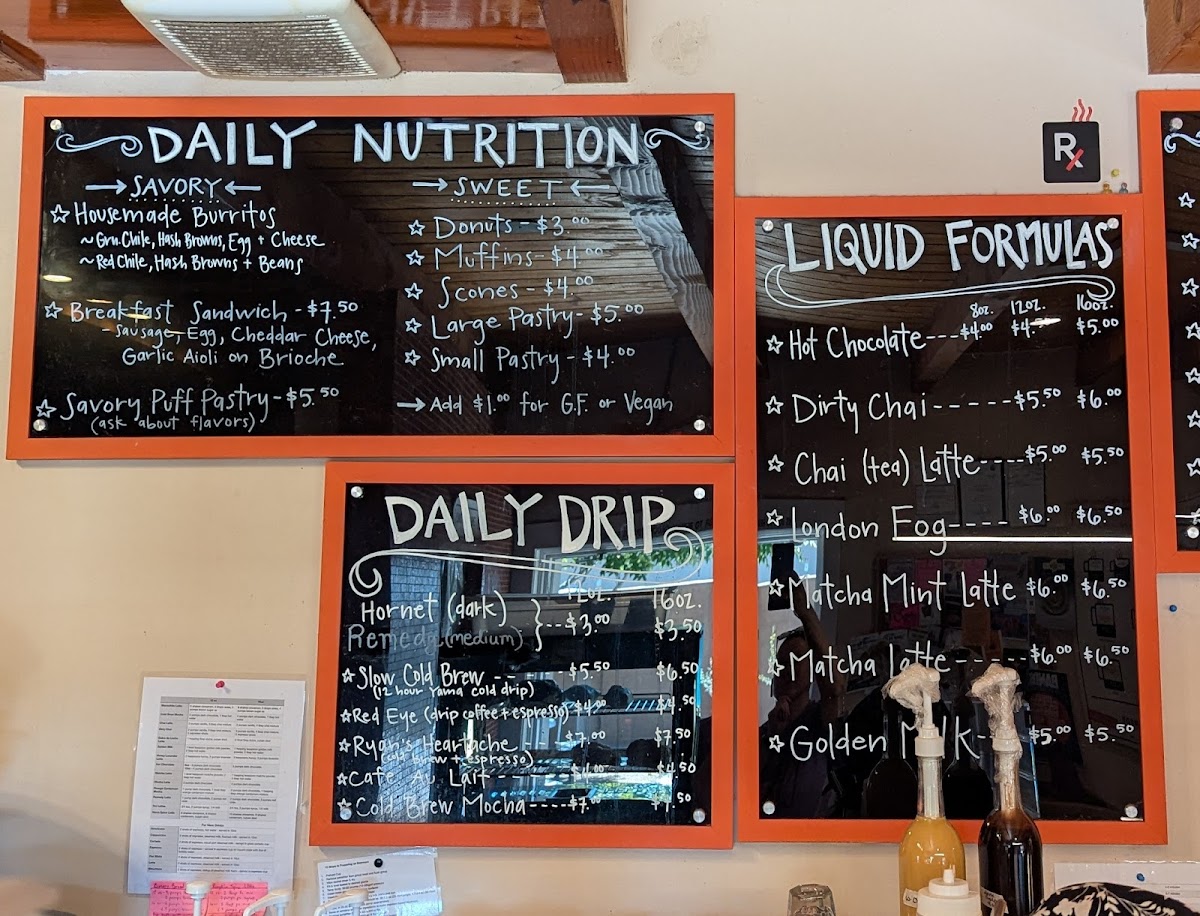 DAILY NUTRITION
→ SAVORY ←
☆ Housemade Burritos
~ Grn. Chile, Hash Browns, Egg + Cheese
~ Red Chile, Hash Browns + Beans
☆ Breakfast Sandwich - $7.50
- Sausage, Egg, Cheddar Cheese,
Garlic Aioli on Brioche
☆ Savory Puff Pastry - $5.50
(ask about flavors)
→ SWEET ←
☆ Donuts - $3.00
☆ Muffins - $4.00
☆ Scones - $4.00
☆ Large Pastry - $5.00
☆ Small Pastry - $4.00
→ Add $1.00 for G.F. or Vegan
DAILY DRIP
12oz. 16oz.
Hornet (dark)
Remedy (medium) } --- $3.00 $3.50
☆ Slow Cold Brew --- $5.50 $6.50
(12 hour Yama cold drip)
☆ Red Eye (drip coffee + espresso) $4.00
☆ Ryan's Heartache --- $7.00 $7.50
(cold brew + espresso)
☆ Cafe Au Lait
☆ Cold Brew Mocha ----
Rx
LIQUID FORMULAS
8oz. 12oz. 16oz.
☆ Hot Chocolate --- $4.00 $5.00
☆ Dirty Chai ----- $5.50 $6.00
☆ Chai (tea) Latte ---- $5.00 $5.50
☆ London Fog ---- $6.00 $6.50
☆ Matcha Mint Latte $6.00 $6.50
☆ Matcha Latte ----- $6.00 $6.50
☆ Golden Milk --- $5.00 $5.50